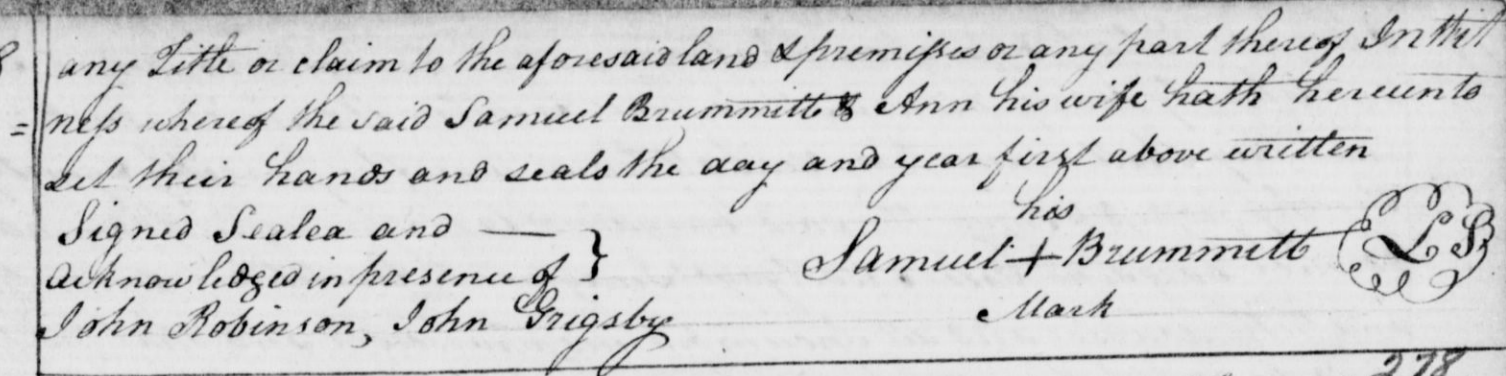 any Title or claim to the aforesaid land & premises or any part thereof In Wit
= ness whereof the said Samuel Brummitt & Ann his wife hath hereunto
set their hands and seals the day and year first above written
Signed Sealed and —
acknowledged in presence of }
John Robinson, John Grigsby
his
Samuel + Brummett LS
Mark
278